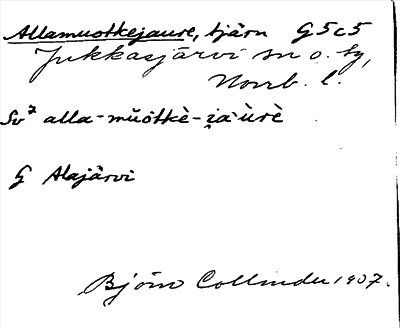 Allamuotkejaure, tjärn G5c5
Jukkasjärvi sn o. tg,
Norrb. l.
Sv² alla-mŭòtkè-i̯a·ùrè
G Alajärvi
Björn Collinder 1907.